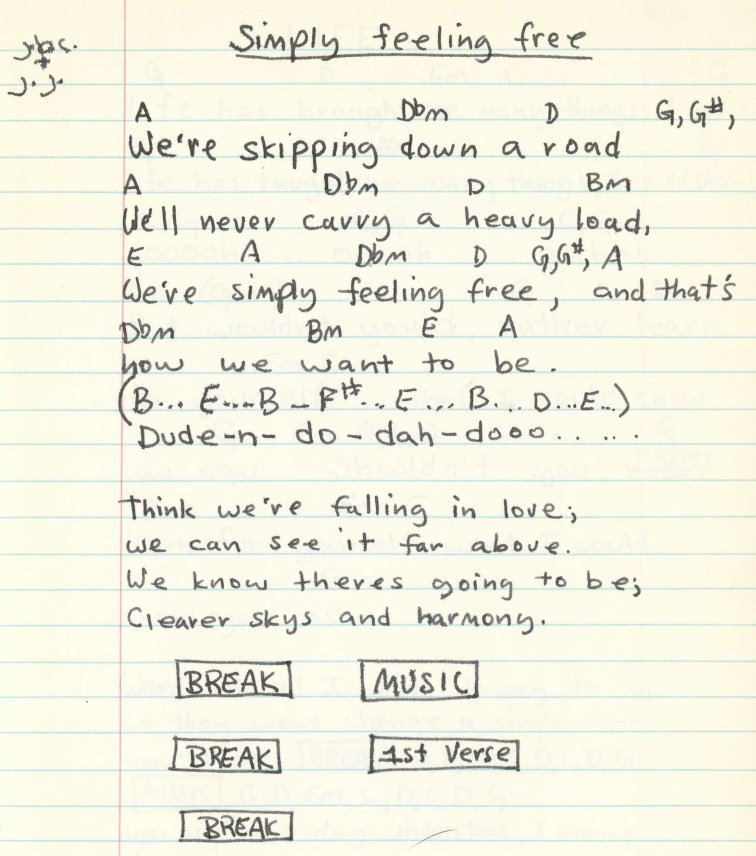 Simply feeling free
J.b.c.
+
J.J.
A Dbm D G, G#,
We're skipping down a road
A Dbm D Bm
We'll never carry a heavy load,
E A Dbm D G,G#, A
We're simply feeling free, and that's
Dbm Bm E A
how we want to be.
(B... E...-B - F#... E... B... D...E...)
Dude-n- do-dah-dooo......
Think we're falling in love;
we can see it far above.
We know theres going to be;
Clearer skys and harmony.
BREAK MUSIC
BREAK 1st Verse
BREAK